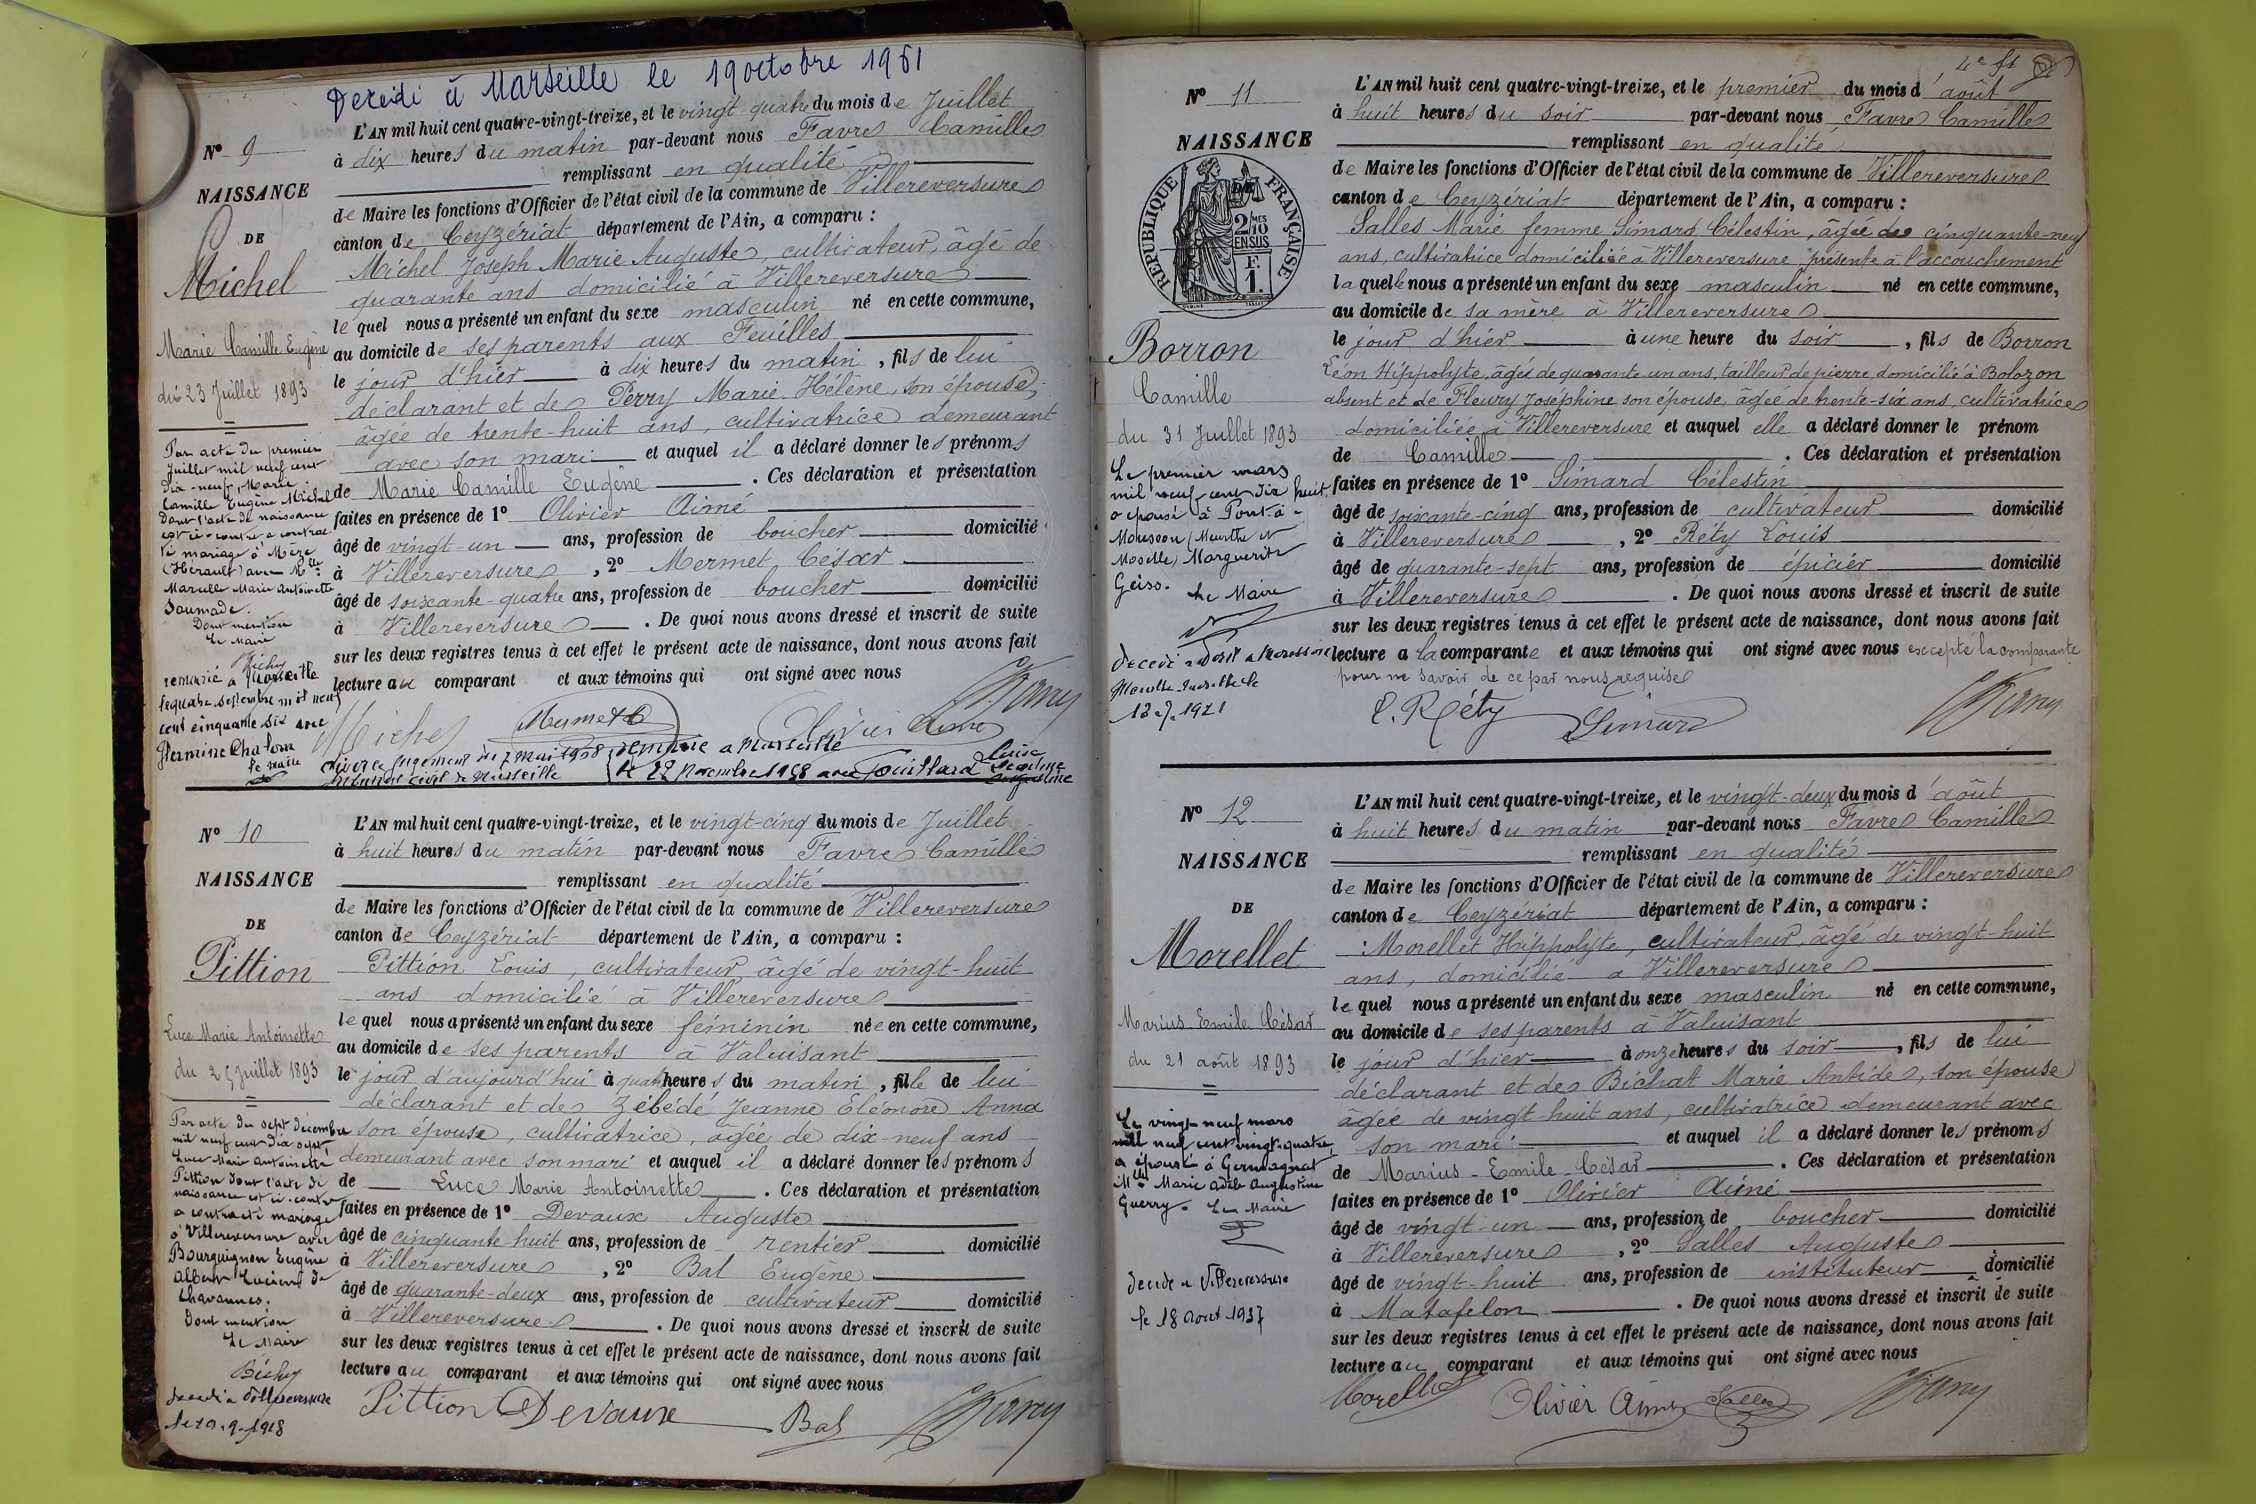 Décédé à Marseille le 19 octobre 1961
N° 9
NAISSANCE
DE
Michel
Marie Camille Eugène
du 23 Juillet 1893
Par acte du premier
Juillet mil neuf cent
dix-neuf, Marie
Camille Eugène Michel
dont l'acte de naissance
est ci-contre a contrac
té mariage à Mèze
(Hérault) avec Mlle
Marcelle Marie Antoinette
Soumade.
Dont mention
Le Maire
remarié à Marseille
le quatre septembre mil neuf
cent cinquante six avec
Hermine Chalom
le maire
L'AN mil huit cent quatre-vingt-treize, et le vingt-quatre du mois de Juillet
à dix heures du matin par-devant nous Favre Camille
remplissant en qualité
de Maire les fonctions d'Officier de l'état civil de la commune de Villereversure
canton de Ceyzériat département de l'Ain, a comparu :
Michel Joseph Marie Auguste, cultivateur, âgé de
quarante ans domicilié à Villereversure
lequel nous a présenté un enfant du sexe masculin né en cette commune,
au domicile de ses parents aux Feuilles
le jour d'hier à dix heures du matin, fils de lui
déclarant et de Perry Marie Hélène, son épouse,
âgée de trente-huit ans, cultivatrice demeurant
avec son mari et auquel il a déclaré donner les prénoms
de Marie Camille Eugène. Ces déclaration et présentation
faites en présence de 1° Olivier Aimé
âgé de vingt-un ans, profession de boucher domicilié
à Villereversure, 2° Mermet César
âgé de soixante-quatre ans, profession de boucher domicilié
à Villereversure. De quoi nous avons dressé et inscrit de suite
sur les deux registres tenus à cet effet le présent acte de naissance, dont nous avons fait
lecture au comparant et aux témoins qui ont signé avec nous
Michel Mermet Olivier Aimé
Divorce jugement du 7 Mai 1958 remarié à Marseille
tribunal civil de Marseille le 22 Novembre 1958 avec Louise
N° 10
NAISSANCE
DE
Pittion
Luce Marie Antoinette
du 25 Juillet 1893
Par acte du sept décembre
mil neuf cent dix sept
Luce Marie Antoinette
Pittion dont l'acte de
naissance est ci-contre
a contracté mariage
à Villereversure avec
Bourguignon Eugène
Albert Lucien de
Chavannes.
Dont mention
Le Maire
décédée à Villereversure
L'AN mil huit cent quatre-vingt-treize, et le vingt-cinq du mois de Juillet
à huit heures du matin par-devant nous Favre Camille
remplissant en qualité
de Maire les fonctions d'Officier de l'état civil de la commune de Villereversure
canton de Ceyzériat département de l'Ain, a comparu :
Pittion Louis, cultivateur, âgé de vingt-huit
ans domicilié à Villereversure
lequel nous a présenté un enfant du sexe féminin née en cette commune,
au domicile de ses parents à Valuisant
le jour d'aujourd'hui à quatre heures du matin, fille de lui
déclarant et de Zébédé Jeanne Eléonore Anna
son épouse, cultivatrice, âgée de dix-neuf ans
demeurant avec son mari et auquel il a déclaré donner les prénoms
de Luce Marie Antoinette. Ces déclaration et présentation
faites en présence de 1° Devaux Auguste
âgé de cinquante huit ans, profession de rentier domicilié
à Villereversure, 2° Bal Eugène
âgé de quarante-deux ans, profession de cultivateur domicilié
à Villereversure. De quoi nous avons dressé et inscrit de suite
sur les deux registres tenus à cet effet le présent acte de naissance, dont nous avons fait
lecture au comparant et aux témoins qui ont signé avec nous
Pittion Devaux Bal
N° 11
NAISSANCE
DE
REPUBLIQUE FRANÇAISE
2/10 EN SUS
F. 1.
Borron
Camille
du 31 Juillet 1893
Le premier mars
mil neuf cent dix huit
a épousé à Pont-à-
Mousson (Meurthe et
Moselle) Marguerite
Geiss.
Le Maire
L'AN mil huit cent quatre-vingt-treize, et le premier du mois d'août
à huit heures du soir par-devant nous Favre Camille
remplissant en qualité
de Maire les fonctions d'Officier de l'état civil de la commune de Villereversure
canton de Ceyzériat département de l'Ain, a comparu :
Salles Marie femme Simard Célestin, âgée de cinquante-neuf
ans, cultivatrice domiciliée à Villereversure présente à l'accouchement
laquelle nous a présenté un enfant du sexe masculin né en cette commune,
au domicile de sa mère à Villereversure
le jour d'hier à une heure du soir, fils de Borron
Léon Hippolyte, âgé de quarante-un ans, tailleur de pierre, domicilié à Bolozon
absent et de Fleury Joséphine son épouse, âgée de trente-six ans, cultivatrice
domiciliée à Villereversure et auquel elle a déclaré donner le prénom
de Camille. Ces déclaration et présentation
faites en présence de 1° Simard Célestin
âgé de soixante-cinq ans, profession de cultivateur domicilié
à Villereversure, 2° Réty Louis
âgé de quarante-sept ans, profession de épicier domicilié
à Villereversure. De quoi nous avons dressé et inscrit de suite
sur les deux registres tenus à cet effet le présent acte de naissance, dont nous avons fait
lecture a la comparante et aux témoins qui ont signé avec nous excepté la comparante
pour ne savoir de ce par nous requise
L. Réty Simard
N° 12
NAISSANCE
DE
Morellet
Marius Emile César
du 21 août 1893
Le vingt-neuf mars
mil neuf cent vingt-quatre,
a épousé à Germagnat
Mlle Marie Adèle Augustine
Guerry. Le Maire
décédé à Villereversure
le 18 Aout 1937
L'AN mil huit cent quatre-vingt-treize, et le vingt-deux du mois d'août
à huit heures du matin par-devant nous Favre Camille
remplissant en qualité
de Maire les fonctions d'Officier de l'état civil de la commune de Villereversure
canton de Ceyzériat département de l'Ain, a comparu :
Morellet Hippolyte, cultivateur, âgé de vingt-huit
ans, domicilié à Villereversure
lequel nous a présenté un enfant du sexe masculin né en cette commune,
au domicile de ses parents à Valuisant
le jour d'hier à onze heures du soir, fils de lui
déclarant et de Bichat Marie Antide, son épouse
âgée de vingt huit ans, cultivatrice demeurant avec
son mari et auquel il a déclaré donner les prénoms
de Marius-Emile-César. Ces déclaration et présentation
faites en présence de 1° Olivier Aimé
âgé de vingt-un ans, profession de boucher domicilié
à Villereversure, 2° Salles Auguste
âgé de vingt-huit ans, profession de instituteur domicilié
à Matafelon. De quoi nous avons dressé et inscrit de suite
sur les deux registres tenus à cet effet le présent acte de naissance, dont nous avons fait
lecture au comparant et aux témoins qui ont signé avec nous
Morellet Olivier Aimé Salles